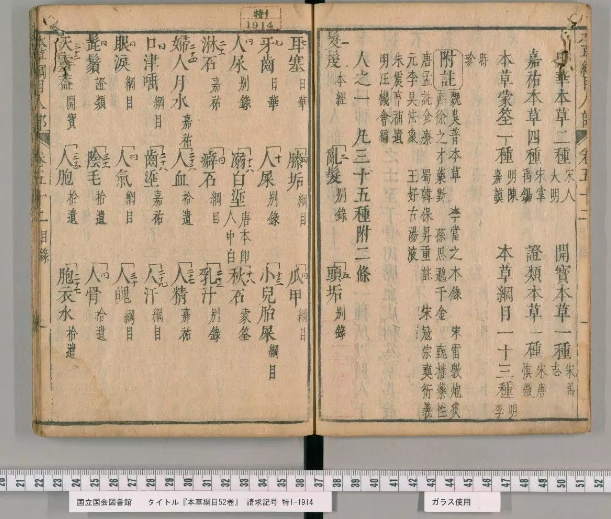 特1
1914
日華本草二種 宋人 大明 開寶本草一種 宋馬志
嘉祐本草四種 宋掌禹錫 證類本草一種 宋唐慎微
本草蒙筌一種 明陳嘉謨 本草綱目一十三種 明李
時珍
附註 魏吳普本草 李當之藥錄 宋雷斆炮炙
齊徐之才藥對 孫思邈千金 甄權藥性
唐孟詵食療 蜀韓保昇重註 宋寇宗奭衍義
元李杲法象 王好古湯液
朱震亨補遺
明汪機會編
人之一 凡三十五種附二條
髮髲 本經 亂髮 別錄 頭垢 別錄
耳塞 日華 膝垢 綱目 爪甲 綱目
牙齒 日華 人屎 別錄 小兒胎屎 綱目
人尿 別錄 溺白垽 唐本 即人中白 秋石 蒙筌
淋石 嘉祐 癖石 綱目 乳汁 別錄
婦人月水 嘉祐 人血 拾遺 人精 嘉祐
口津唾 綱目 齒垽 嘉祐 人汗 拾遺
眼淚 綱目 人氣 綱目 人魄 綱目
髭鬚 證類 陰毛 拾遺 人骨 拾遺
天靈蓋 開寶 人胞 拾遺 胞衣水 拾遺
本草綱目人部 卷五十二目錄
国立国会図書館 タイトル『本草綱目52巻』 請求記号 特1-1914
ガラス使用